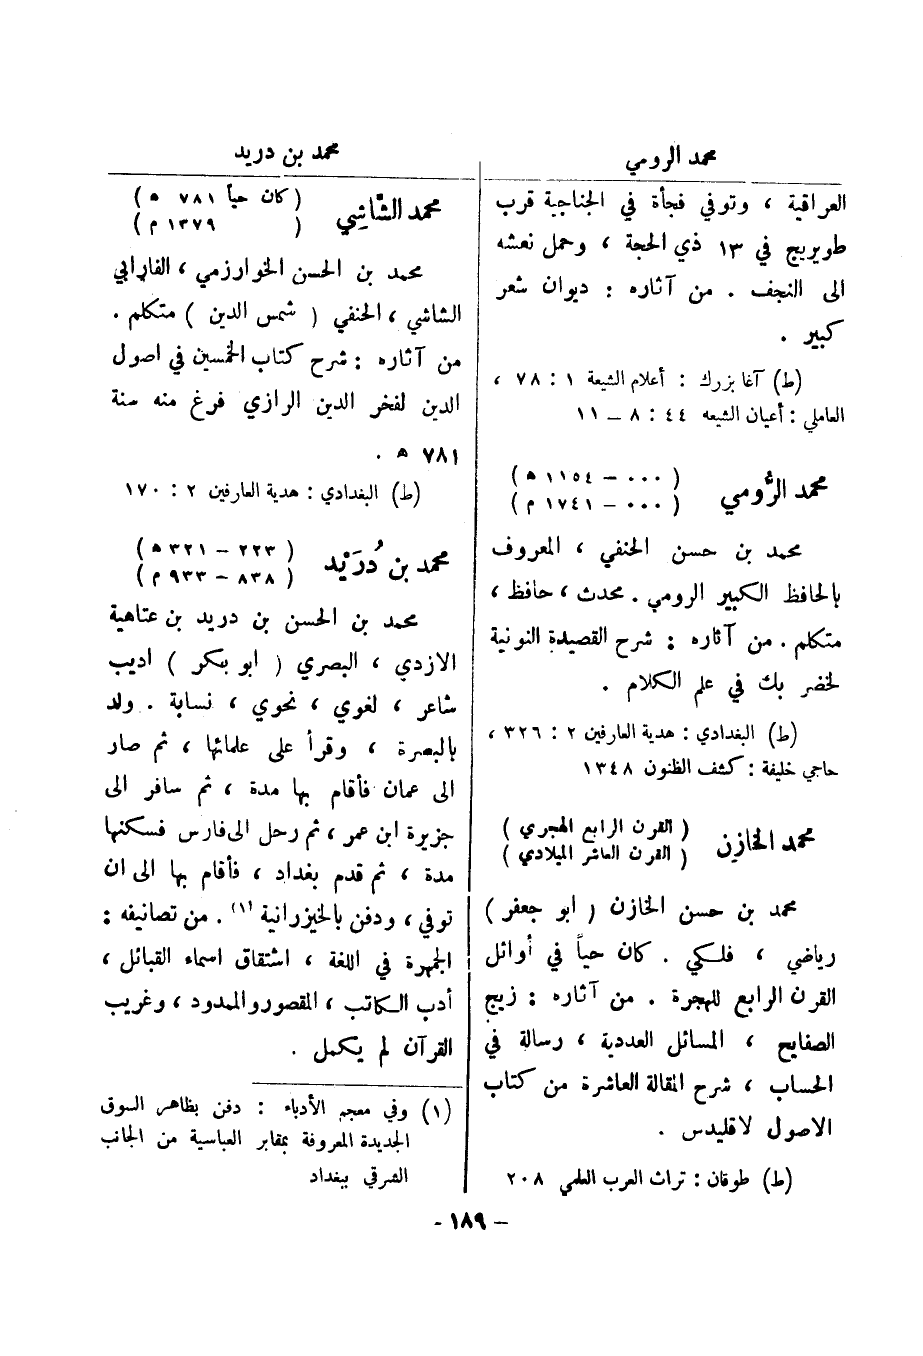 محمد الرومي
العراقية ، وتوفي فجأة في الجناجية قرب
طويريج في ١٣ ذي الحجة ، وحمل نعشه
الى النجف . من آثاره : ديوان شعر
كبير .
(ط) آغا بزرك : أعلام الشيعة ١ : ٧٨ ،
العاملي : أعيان الشيعه ٤٤ : ٨ – ١١
محمد الرُّومي
( ٠٠٠ – ١١٥٤ ه )
( ٠٠٠ – ١٧٤١ م )
محمد بن حسن الحنفي ، المعروف
بالحافظ الكبير الرومي . محدث ، حافظ ،
متكلم . من آثاره : شرح القصيدة النونية
لخضر بك في علم الكلام .
(ط) البغدادي : هدية العارفين ٢ : ٣٢٦ ،
حاجي خليفة : كشف الظنون ١٣٤٨
محمد الخازِن
( القرن الرابع الهجري )
( القرن العاشر الميلادي )
محمد بن حسن الخازن ( ابو جعفر )
رياضي ، فلكي . كان حياً في أوائل
القرن الرابع للهجرة . من آثاره : زيج
الصفايح ، المسائل العددية ، رسالة في
الحساب ، شرح المقالة العاشرة من كتاب
الاصول لاقليدس .
(ط) طوقان : تراث العرب العلمي ٢٠٨
محمد بن دريد
محمد الشَّاشِي
( كان حياً ٧٨١ ه )
( ١٣٧٩ م )
محمد بن الحسن الخوارزمي ، الفارابي
الشاشي ، الحنفي ( شمس الدين ) متكلم .
من آثاره : شرح كتاب الخمسين في اصول
الدين لفخر الدين الرازي فرغ منه سنة
٧٨١ ه .
(ط) البغدادي : هدية العارفين ٢ : ١٧٠
محمد بن دُرَيْد
( ٢٢٣ – ٣٢١ ه )
( ٨٣٨ – ٩٣٣ م )
محمد بن الحسن بن دريد بن عتاهية
الازدي ، البصري ( ابو بكر ) اديب
شاعر ، لغوي ، نحوي ، نسابة . ولد
بالبصرة ، وقرأ على علمائها ، ثم صار
الى عمان فأقام بها مدة ، ثم سافر الى
جزيرة ابن عمر ، ثم رحل الى فارس فسكنها
مدة ، ثم قدم بغداد ، فأقام بها الى ان
توفي ، ودفن بالخيزرانية (١) . من تصانيفه :
الجمهرة في اللغة ، اشتقاق اسماء القبائل ،
أدب الكاتب ، المقصور والممدود ، وغريب
القرآن لم يكمل .
(١) وفي معجم الأدباء : دفن بظاهر السوق
الجديدة المعروفة بمقابر العباسية من الجانب
الشرقي ببغداد
– ١٨٩ -